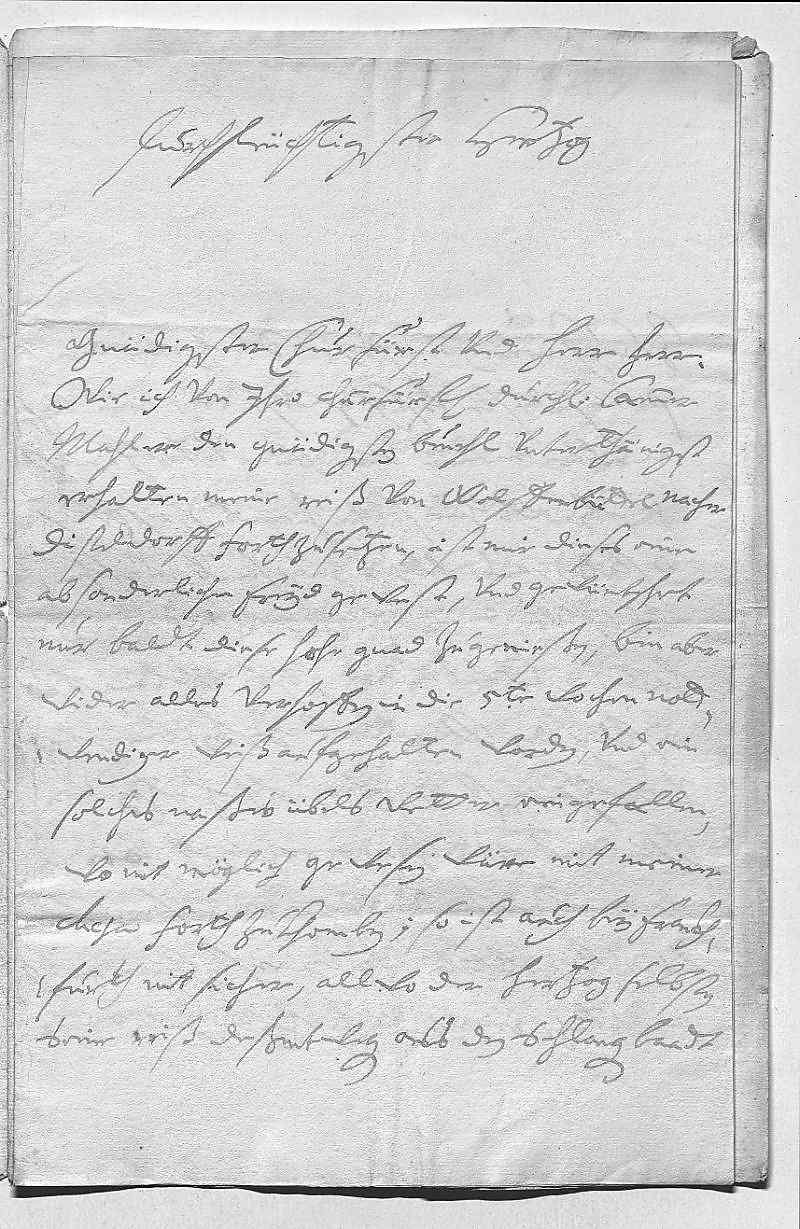 Durchleüchtigster Hertzog
Gnädigster Chürfürst Und Herr Herr.
Wie ich Von Ihro Chürfürstl. Dürchl. Camer
Mahler den gnädigsten befehl Unterthänigst
erhalten meine reiß Von Wolffenbüdel nacher
Diseldorff forth zu setzen, ist mir dieses eine
absonderliche freyd gewest, Und gewüntschet
nur baldt diese hohe gnad zu geniessen, bin aber
wider alles Verhoffen in die 5te wochen noth„
wendiger weiß aufgehalten worden, Und ein
solches nasses übels wetter eingefallen,
wo nit möglich gewesen wäre mit meinen
forth zu khomben; so ist auch bey franckh„
fürth nit sicher, allwo der Hertzog selbsten
seine reiß deßentwegen aus den Schlangenbaadt